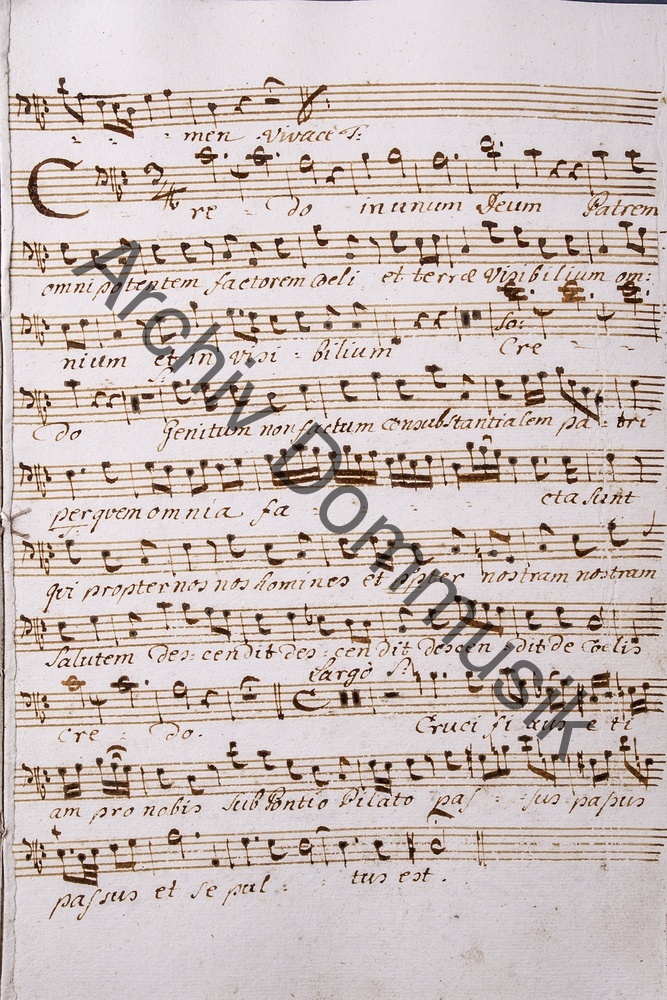 men Vivace T:
Credo in unum Deum Patrem
omnipotentem factorem Celi et terræ Visibilium om:
nium et in Visi : bilium So:
Cre
do Genitum non factum Consubstantialem pa : tri
per quem omnia fa et a sunt
qui propter nos nos homines et ppter nostram nostram
Salutem des : cendit des : cendit descen : dit de Coelis
Largo S:
cre : do. Cruci fi xus e ti
am pro nobis sub Pontio Pilato pas : sus passus
passus et se pul : tus est.
Archiv Dommusik